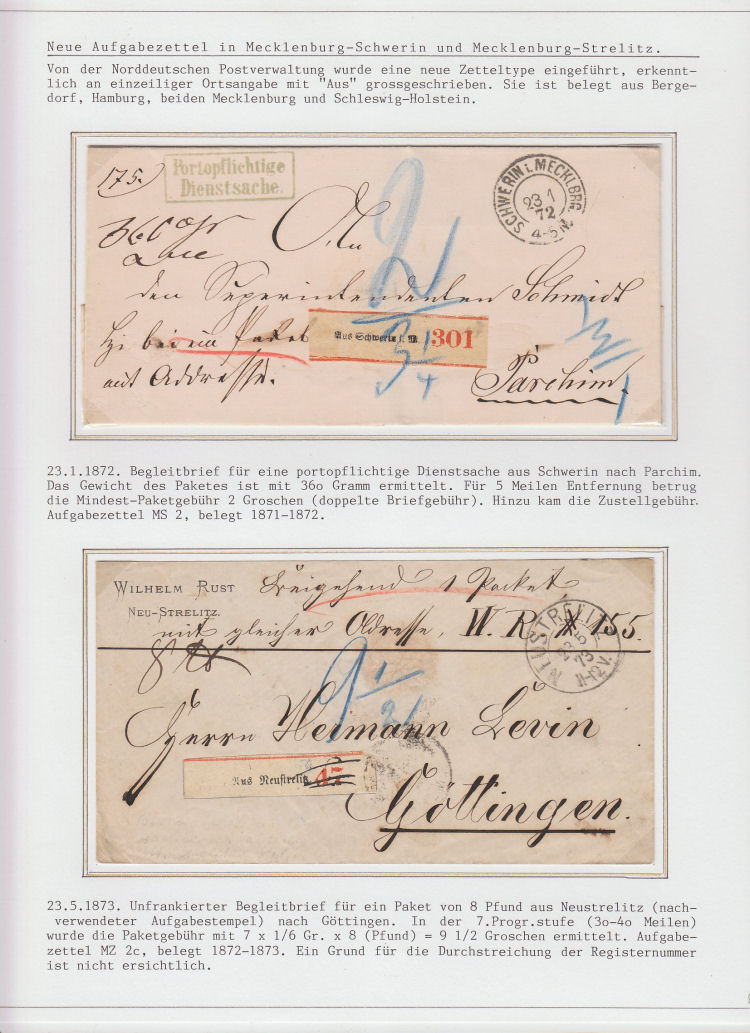 Neue Aufgabezettel in Mecklenburg-Schwerin und Mecklenburg-Strelitz.
Von der Norddeutschen Postverwaltung wurde eine neue Zetteltype eingeführt, erkennt-
lich an einzeiliger Ortsangabe mit "Aus" grossgeschrieben. Sie ist belegt aus Berge-
dorf, Hamburg, beiden Mecklenburg und Schleswig-Holstein.
175.
Portopflichtige
Dienstsache.
SCHWERIN i. MECKLBRG.
23 1
72
4-5 N.
An
den Superintendenten Schmidt
bei ein Paket
mit Addresse.
Aus Schwerin i. M. 301
Parchim.
23.1.1872. Begleitbrief für eine portopflichtige Dienstsache aus Schwerin nach Parchim.
Das Gewicht des Paketes ist mit 36o Gramm ermittelt. Für 5 Meilen Entfernung betrug
die Mindest-Paketgebühr 2 Groschen (doppelte Briefgebühr). Hinzu kam die Zustellgebühr.
Aufgabezettel MS 2, belegt 1871-1872.
WILHELM RUST
NEU-STRELITZ.
Beigehend 1 Packet
mit gleicher Adresse, W. R. # 155.
NEUSTRELITZ
23 5
73
11-12 V.
9 1/2
Herrn Heimann Levin
Aus Neustrelitz 47
Göttingen.
23.5.1873. Unfrankierter Begleitbrief für ein Paket von 8 Pfund aus Neustrelitz (nach-
verwendeter Aufgabestempel) nach Göttingen. In der 7.Progr.stufe (3o-4o Meilen)
wurde die Paketgebühr mit 7 x 1/6 Gr. x 8 (Pfund) = 9 1/2 Groschen ermittelt. Aufgabe-
zettel MZ 2c, belegt 1872-1873. Ein Grund für die Durchstreichung der Registernummer
ist nicht ersichtlich.